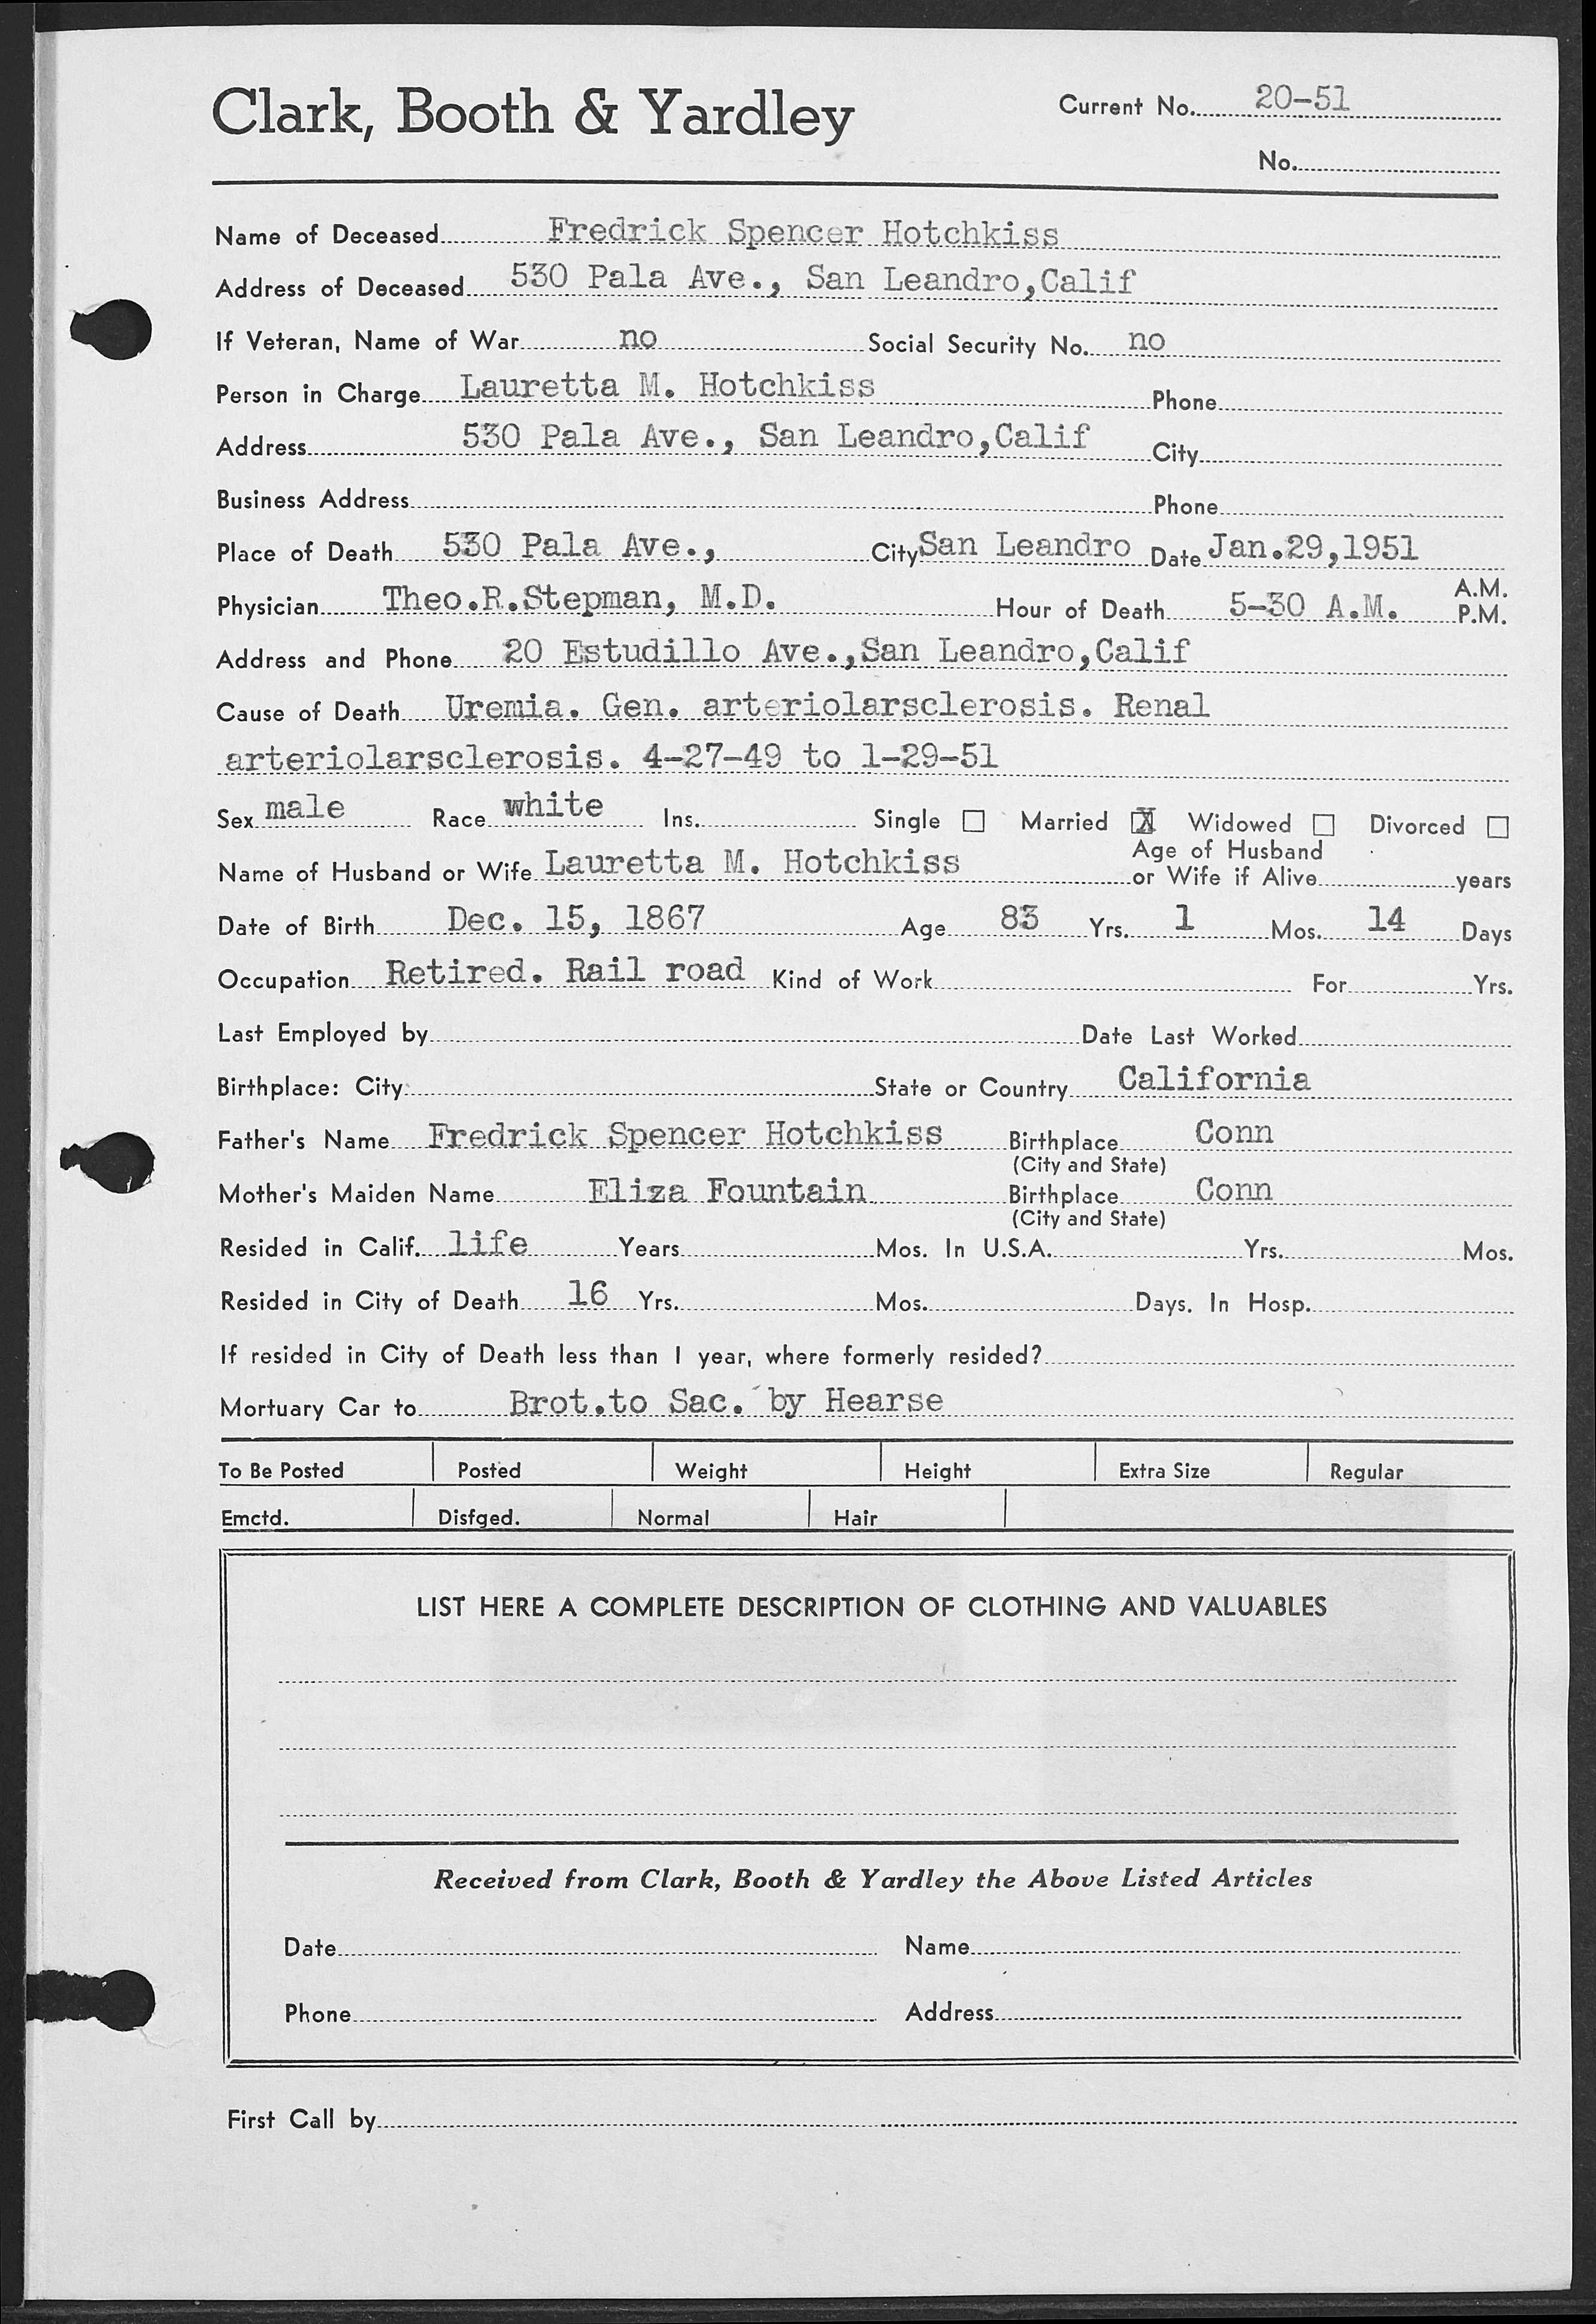 Clark, Booth & Yardley Current No. 20-51
No.
Name of Deceased Fredrick Spencer Hotchkiss
Address of Deceased 530 Pala Ave., San Leandro,Calif
If Veteran, Name of War no Social Security No. no
Person in Charge Lauretta M. Hotchkiss Phone
Address 530 Pala Ave., San Leandro,Calif City
Business Address Phone
Place of Death 530 Pala Ave., City San Leandro Date Jan.29,1951
Physician Theo.R.Stepman, M.D. Hour of Death 5-30 A.M. A.M. P.M.
Address and Phone 20 Estudillo Ave.,San Leandro,Calif
Cause of Death Uremia. Gen. arteriolarsclerosis. Renal
arteriolarsclerosis. 4-27-49 to 1-29-51
Sex male Race white Ins. Single ☐ Married ☒ Widowed ☐ Divorced ☐
Name of Husband or Wife Lauretta M. Hotchkiss Age of Husband or Wife if Alive years
Date of Birth Dec. 15, 1867 Age 83 Yrs. 1 Mos. 14 Days
Occupation Retired. Rail road Kind of Work For Yrs.
Last Employed by Date Last Worked
Birthplace: City State or Country California
Father's Name Fredrick Spencer Hotchkiss Birthplace Conn
(City and State)
Mother's Maiden Name Eliza Fountain Birthplace Conn
(City and State)
Resided in Calif. life Years Mos. In U.S.A. Yrs. Mos.
Resided in City of Death 16 Yrs. Mos. Days. In Hosp.
If resided in City of Death less than 1 year, where formerly resided?
Mortuary Car to Brot.to Sac. by Hearse
To Be Posted Posted Weight Height Extra Size Regular
Emctd. Disfged. Normal Hair
LIST HERE A COMPLETE DESCRIPTION OF CLOTHING AND VALUABLES
Received from Clark, Booth & Yardley the Above Listed Articles
Date Name
Phone Address
First Call by